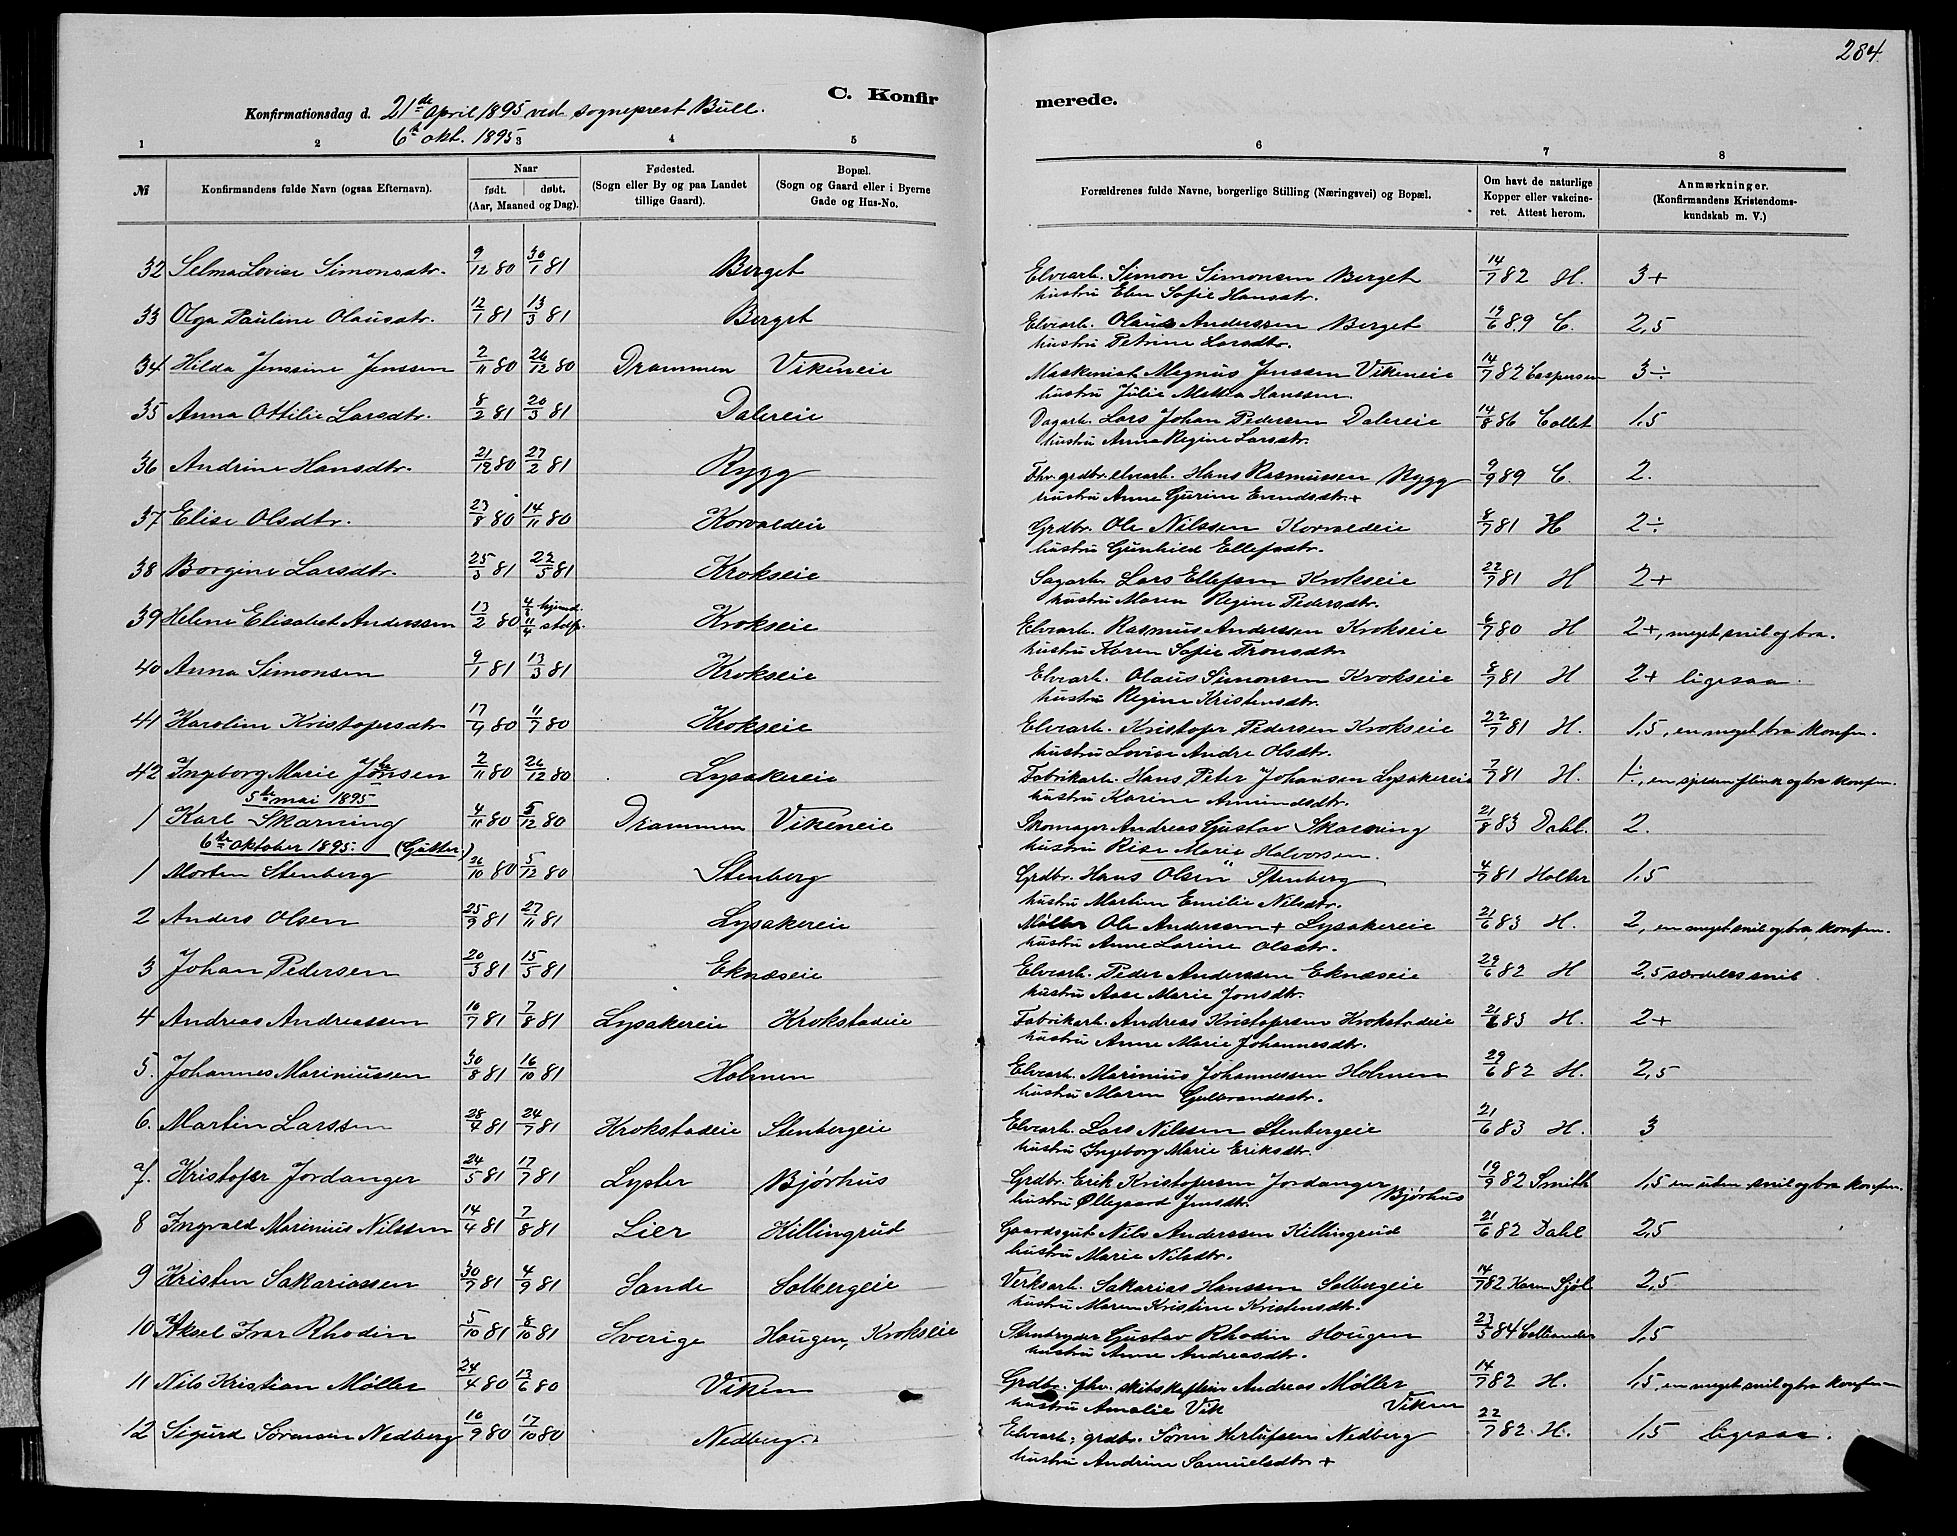 284.
C. Konfirmerede.
Konfirmationsdag d. 21de April 1895 ved sogneprest Bull.
6te okt. 1895
1 2 3 4 5 6 7 8
№ Konfirmandens fulde Navn (ogsaa Efternavn). Naar født. døbt. (Aar, Maaned og Dag). Fødested. (Sogn eller By og paa Landet tillige Gaard). Bopæl. (Sogn og Gaard eller i Byerne Gade og Hus-No. Forældrenes fulde Navne, borgerlige Stilling (Næringsvei) og Bopæl. Om havt de naturlige Kopper eller vakcineret. Attest herom. Anmærkninger. (Konfirmandens Kristendomskundskab m. V.)
32 Selma Lovise Simonsdtr. 9/12 80 30/1 81 Berget Elvearb. Simon Simonsen Berget 14/7 82 H. 3+
hustru Elen Sofie Hansdtr.
33 Olga Pauline Olausdtr. 12/1 81 13/3 81 Berget Elvearb. Olaus Anderssen Berget 19/6 89 C. 2,5
hustru Petrine Larsdtr.
34 Hilda Jenssine Jenssen 2/11 80 26/12 80 Drammen Vikeneie Maskenist Magnus Jenssen Vikeneie 14/7 82 Caspersen 3÷
hustru Julie Mattea Hanssen.
35 Anna Ottilie Larsdtr. 8/2 81 20/3 81 Dalereie Dagarb. Lars Johan Pedersen Dalereie 14/8 86 Collet 1,5
hustru Anna Regine Larsdtr.
36 Andrine Hansdtr. 21/12 80 27/2 81 Rygg Fhv. grdbr. elvearb. Hans Rasmussen Rygg 9/9 89 C. 2.
hustru Anne Gurine Evensdtr. +
37 Elise Olsdtr. 23/8 80 14/11 80 Korvaldeie Grdbr. Ole Nilssen Korvaldeie 8/7 81 H 2÷
hustru Gunhild Ellefsdtr.
38 Borgine Larsdtr. 25/3 81 22/5 81 Krokseie Sagarb. Lars Ellefsen Krokseie 22/7 81 H 2+
hustru Maren Regine Pedersdtr.
39 Helene Elisabet Anderssen 13/2 80 hjemd. 11/4 stdf. Krokseie Elvearb. Rasmus Anderssen Krokseie 6/7 80 H 2+, meget snil og bra.
hustru Karen Sofie Tronsdtr.
40 Anna Simonsen 9/1 81 13/3 81 Krokseie Elvearb. Olaus Simonsen Krokseie 8/7 81 H 2+ ligesaa.
hustru Regine Kristensdtr.
41 Karoline Kristofersdtr 17/4 80 11/7 80 Krokseie Elvearb. Kristofer Pedersen Krokseie 22/7 81 H. 1,5, en meget bra konfm.
hustru Lovise Andre Olsdtr.
42 Ingeborg Marie Johansen 2/11 80 26/12 80 Lysakereie Fabrikarb. Hans Peter Johansen Lysakereie 7/7 81 H. 1÷, en sjelden flink og bra konfm.
hustru Karine Amundsdtr.
5te mai 1895
1 Karl Skarning 4/11 80 5/12 80 Drammen Vikeneie Skomager Andreas Gustav Skarning 21/8 83 Dahl. 2.
hustru Rise Marie Halvorsen.
6te oktober 1895. (Gutter.)
1 Morten Stenberg 26/10 80 5/12 80 Stenberg Grdbr. Hans Olsen Stenberg 4/7 81 Holter 1,5
hustru Martine Emilie Nilsdtr.
2 Anders Olsen 25/9 81 27/11 81 Lysakereie Møller Ole Anderssen + Lysakereie 21/6 83 H. 2, en meget snil og bra konfm.
hustru Anne Larine Olsdtr.
3 Johan Pedersen 20/3 81 15/5 81 Eknæseie Elvearb. Peder Anderssen Eknæseie 29/6 82 H 2,5 særdeles snil
hustru Aase Marie Jonsdtr.
4 Andreas Andreassen 10/7 81 7/8 81 Lysakereie Krokstadeie Fabrikarb. Andreas Kristofersen Krokstadeie 21/6 83 H. 2+
hustru Anne Marie Johannesdtr.
5. Johannes Mariniussen 30/8 81 16/10 81 Holmen Elvearb. Marinius Johannessen Holmen 29/6 82 H. 2,5
hustru Maren Gulbrandsdtr.
6. Martin Larssen 28/4 81 24/7 81 Krokstadeie Stenbergeie Elvearb. Lars Nilssen Stenbergeie 21/6 83 H. 3
hustru Ingeborg Marie Eriksdtr.
7. Kristofer Jordanger 24/5 81 17/7 81 Lyster Bjørhus Grdbr. Erik Kristofersen Jordanger Bjørhus 19/9 82 Smith 1,5 en uten snil og bra konfm.
hustru Øllegaard Jensdtr.
8 Ingvald Marinius Nilssen 14/4 81 7/8 81 Lier Killingrud Gaardsgut Nils Anderssen Killingrud 21/6 82 Dahl 2,5
hustru Marie Nilsdtr.
9 Kristen Sakariassen 30/7 81 4/9 81 Sande Solbergeie Verksarb. Sakarias Hanssen Solbergeie 14/7 82 Karen Sjøl 2,5
hustru Maren Kristine Kristensdtr.
10 Aksel Ivar Rhodin 5/10 81 8/10 81 Sverige Hougen, Krokseie Stenbryder Gustav Rhodin Hougen 23/5 84 1,5
hustru Anne Andreasdtr.
11 Nils Kristian Møller 24/4 80 13/6 80 Viken Grdbr. fhv. skibskaptein Andreas Møller Viken 14/7 82 H. 1,5, en meget snil og bra konfm
hustru Amalie Vik
12 Sigurd Sørensen Nedberg 10/9 80 17/10 80 Nedberg. Elvearb. grdbr. Søren Herlufsen Nedberg 22/7 82 H. 1,5 ligesaa.
hustru Andrine Samuelsdtr +